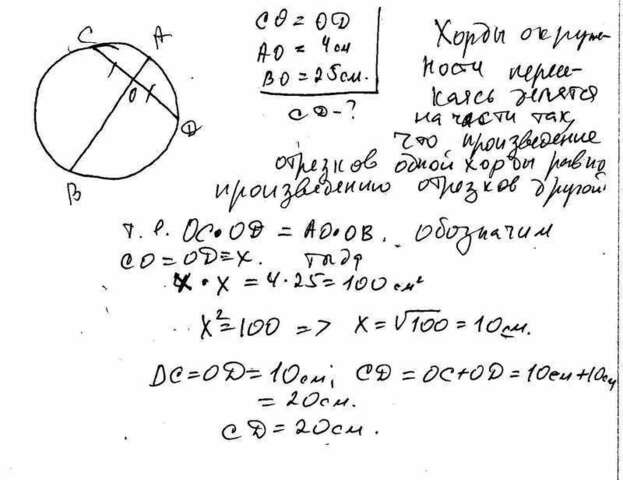 C
A
O
D
B
CO = OD
AO = 4см
BO = 25см.
CD - ?
Хорды окруж-
ности пересе-
каясь делятся
на части так,
что произведение
отрезков одной хорды равно
произведению отрезков другой
т. е. OC•OD = AO•OB. обозначим
CO = OD = x. тогда
x • x = 4•25 = 100 см²
x² = 100 => x = √100 = 10см.
DC = OD = 10см; CD = OC + OD = 10см + 10см
= 20см.
CD = 20см.